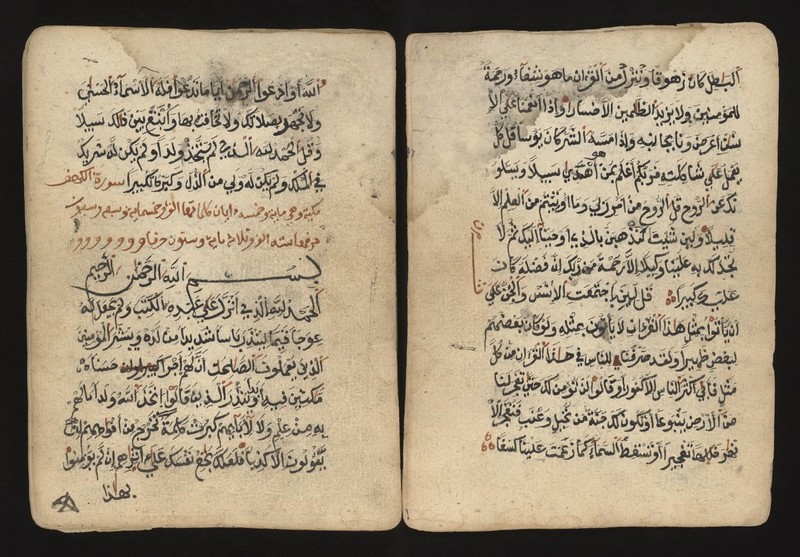 الباطل كان زهوقا وننزل من القران ما هو شفاء ورحمة
للمؤمنين ولا يزيد الظالمين الا خسارا واذا انعمنا على الا
نسان اعرض ونايجانبه واذا مسه الشر كان يوسا قل كل
يعمل على شاكلته فربكم اعلم بمن هو اهدى سبيلا ويسلو
نك عن الروح قل الروح من امر ربي وما اوتيتم من العلم الا
قليلا ولين شينا لنذهبن بالذي اوحينا اليك ثم لا
تجد لك به علينا وكيلا الا رحمة من ربك ان فضله كان
عليك كبيرا قل لين اجتمعت الانس والجن على
ان ياتوا بمثل هذا القران لا ياتون بمثله ولو كان بعضهم
لبعض ظهيرا ولقد صرفنا للناس في هذا القران من كل
مثل فابى اكثر الناس الا كفورا وقالوا لن نومن لك حتى تفجر لنا
من الارض ينبوعا او تكون لك جنة من نخيل وعنب فتفجر الا
نهر خللها تفجيرا او تسقط السماء كما زعمت علينا كسفا
الله او ادعوا الرحمن ايا ما تدعوا فله الاسماء الحسنى
ولا تجهر بصلاتك ولا تخافت بها وابتغ بين ذالك سبيلا
وقل الحمد لله الذي لم يتخذ ولدا ولم يكن له شريك
في الملك ولم يكن له ولي من الذل وكبره تكبيرا سورة الكهف
مكية وهي ماية وخمسة ايات كلماتها الف وخمسماية وسبع وسبعون
حروفها ستة الف وثلاث ماية وستون حرفا
بسم الله الرحمن الرحيم
الحمد لله الذي انزل على عبده الكتب ولم يجعل له
عوجا قيما لينذر باسا شديدا من لدنه ويبشر المؤمنين
الذين يعملون الصالحات ان لهم اجرا حسنا
مكثين فيه ابدا وينذر الذين قالوا اتخذ الله ولدا ما لهم
به من علم ولا لابايهم كبرت كلمة تخرج من افواههم ان
يقولون الا كذبا فلعلك باخع نفسك على اثرهم ان لم يومنوا
بهذا